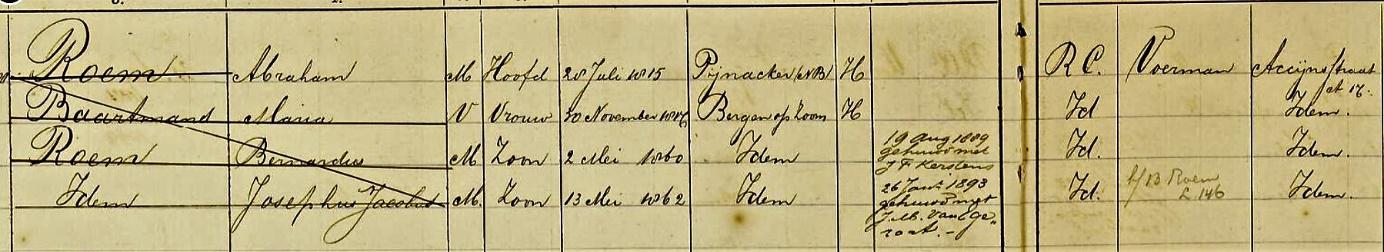 Roem Abraham M Hoofd 28 Juli 1815 Pijnacker (NB) H R C. Voerman Accijnsstraat
at 17.
Baartmand Maria V Vrouw 30 November 1816 Bergen op Zoom H Id Idem.
Roem Bernardus M. Zoon 2 Mei 1860 Idem Id. Idem.
19 Aug 1889
gehuwd met
J F Kerstens
Idem Josephus Jacobus M. Zoon 13 Mei 1862 Idem Id. Idem.
26 Jan 1893
gehuwd met
J.M. van
B Roem
L 146